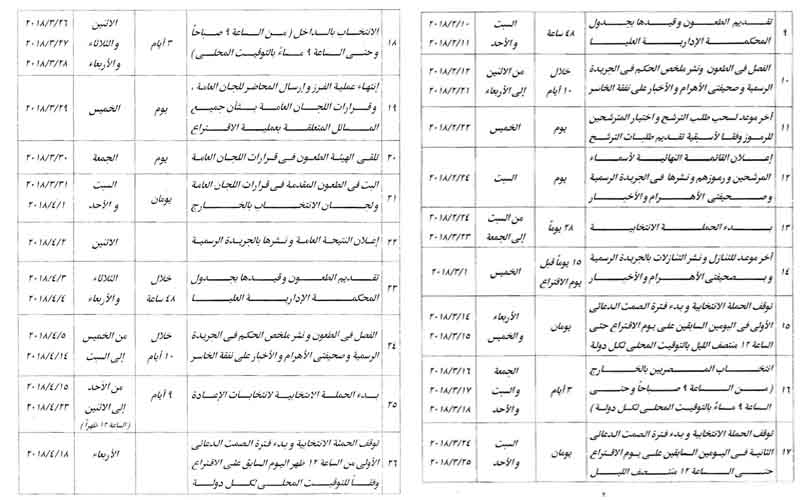 ٩ تقديم الطعون وقيدها بجدول المحكمة الإدارية العليا ٤٨ ساعة السبت والأحد ٢٠١٨/٢/١٠ ٢٠١٨/٢/١١
١٠ الفصل فى الطعون ونشر ملخص الحكم فى الجريدة الرسمية وصحيفتى الأهرام والأخبار على نفقة الخاسر خلال ١٠ أيام من الاثنين إلى الأربعاء ٢٠١٨/٢/١٢ ٢٠١٨/٢/٢١
١١ آخر موعد لسحب طلب الترشح واختيار المترشحين للرموز وفقاً لأسبقية تقديم طلبات الترشح يوم الخميس ٢٠١٨/٢/٢٢
١٢ إعلان القائمة النهائية لأسماء المرشحين ورموزهم ونشرها فى الجريدة الرسمية وصحيفتى الأهرام والأخبار يوم السبت ٢٠١٨/٢/٢٤
١٣ بدء الحملة الانتخابية ٢٨ يوماً من السبت إلى الجمعة ٢٠١٨/٢/٢٤ ٢٠١٨/٣/٢٣
١٤ آخر موعد للتنازل ونشر التنازلات بالجريدة الرسمية وبصحيفتى الأهرام والأخبار ١٥ يوماً قبل يوم الاقتراع الخميس ٢٠١٨/٣/١
١٥ توقف الحملة الانتخابية و بدء فترة الصمت الدعائى الأولى فى اليومين السابقين على يوم الاقتراع حتى الساعة ١٢ منتصف الليل بالتوقيت المحلى لكل دولة يومان الأربعاء والخميس ٢٠١٨/٣/١٤ ٢٠١٨/٣/١٥
١٦ انتخاب المصريين بالخارج ( من الساعة ٩ صباحاً وحتى الساعة ٩ مساءً بالتوقيت المحلى لكل دولة ) ٣ أيام الجمعة والسبت والأحد ٢٠١٨/٣/١٦ ٢٠١٨/٣/١٧ ٢٠١٨/٣/١٨
١٧ توقف الحملة الانتخابية و بدء فترة الصمت الدعائى الثانية فى اليومين السابقين على يوم الاقتراع حتى الساعة ١٢ منتصف الليل يومان السبت والأحد ٢٠١٨/٣/٢٤ ٢٠١٨/٣/٢٥
١٨ الانتخاب بالداخل ( من الساعة ٩ صباحاً وحتى الساعة ٩ مساءً بالتوقيت المحلى ) ٣ أيام الاثنين والثلاثاء والأربعاء ٢٠١٨/٣/٢٦ ٢٠١٨/٣/٢٧ ٢٠١٨/٣/٢٨
١٩ إنتهاء عملية الفرز وإرسال المحاضر للجان العامة ، وقرارات اللجان العامة بشأن جميع المسائل المتعلقة بعملية الاقتراع يوم الخميس ٢٠١٨/٣/٢٩
٢٠ تلقى الهيئة الطعون فى قرارات اللجان العامة يوم الجمعة ٢٠١٨/٣/٣٠
٢١ البت فى الطعون المقدمة فى قرارات اللجان العامة ولجان الانتخاب بالخارج يومان السبت والأحد ٢٠١٨/٣/٣١ ٢٠١٨/٤/١
٢٢ إعلان النتيجة العامة ونشرها بالجريدة الرسمية الاثنين ٢٠١٨/٤/٢
٢٣ تقديم الطعون وقيدها بجدول المحكمة الإدارية العليا خلال ٤٨ ساعة الثلاثاء والأربعاء ٢٠١٨/٤/٣ ٢٠١٨/٤/٤
٢٤ الفصل فى الطعون و نشر ملخص الحكم فى الجريدة الرسمية وصحيفتى الأهرام والأخبار على نفقة الخاسر خلال ١٠ أيام من الخميس إلى السبت ٢٠١٨/٤/٥ ٢٠١٨/٤/١٤
٢٥ بدء الحملة الانتخابية لانتخابات الإعادة ٩ أيام من الأحد إلى الاثنين (الساعة ١٢ ظهراً) ٢٠١٨/٤/١٥ ٢٠١٨/٤/٢٣
٢٦ توقف الحملة الانتخابية و بدء فترة الصمت الدعائى الأولى من الساعة ١٢ ظهر اليوم السابق على الاقتراع وفقاً للتوقيت المحلى لكل دولة الأربعاء ٢٠١٨/٤/١٨